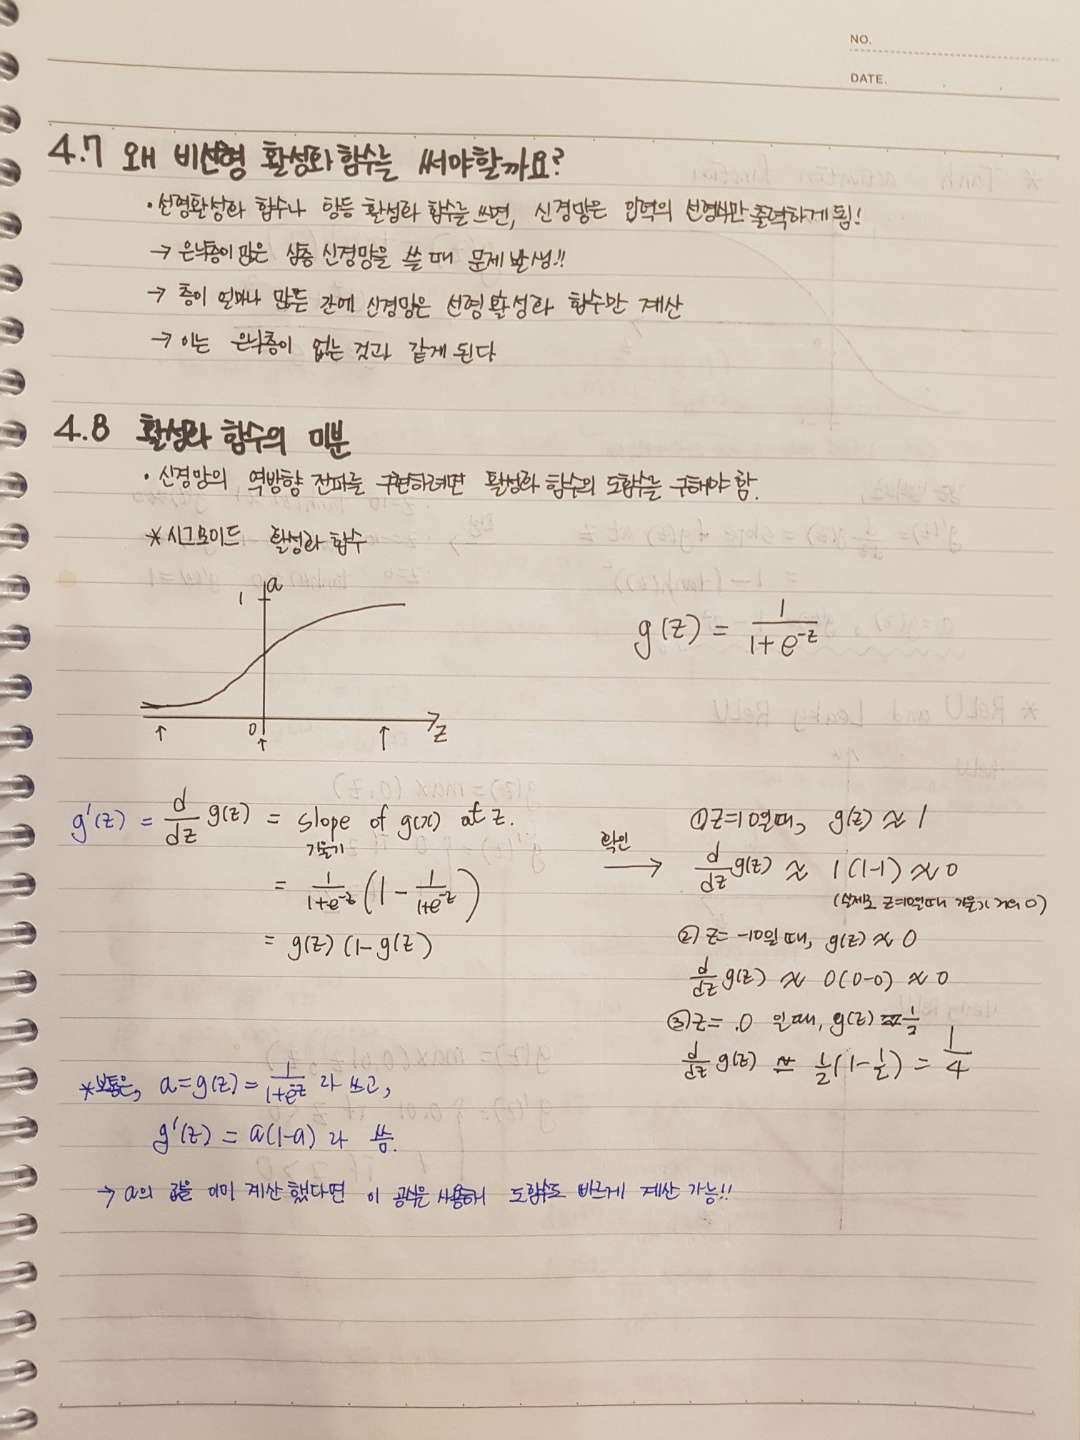 NO.
DATE.
4.7 왜 비선형 활성화 함수를 써야할까요?
· 선형활성화 함수나 항등 활성화 함수를 쓰면, 신경망은 입력의 선형식만 출력하게 됨!
→ 은닉층이 많은 심층 신경망을 쓸 때 문제 발생!!
→ 층이 얼마나 많든 간에 신경망은 선형 활성화 함수만 계산
→ 이는 은닉층이 없는 것과 같게 된다
4.8 활성화 함수의 미분
· 신경망의 역방향 전파를 구현하려면 활성화 함수의 도함수를 구해야 함.
* 시그모이드 활성화 함수
1 a
0 z
g(z) = 1/(1+e^-z)
g'(z) = d/dz g(z) = slope of g(x) at z.
기울기
= 1/(1+e^-z) (1 - 1/(1+e^-z))
= g(z) (1-g(z))
확인 →
① z=10일때, g(z) ≈ 1
d/dz g(z) ≈ 1(1-1) ≈ 0
(실제로 z=10일때 기울기 거의 0)
② z= -10일 때, g(z) ≈ 0
d/dz g(z) ≈ 0(0-0) ≈ 0
③ z= .0 일 때, g(z) = 1/2
d/dz g(z) = 1/2(1-1/2) = 1/4
* 보통은, a=g(z)= 1/(1+e^-z) 라 쓰고,
g'(z) = a(1-a) 라 씀.
→ a의 값을 이미 계산 했다면 이 공식을 사용해서 도함수도 빠르게 계산 가능!!